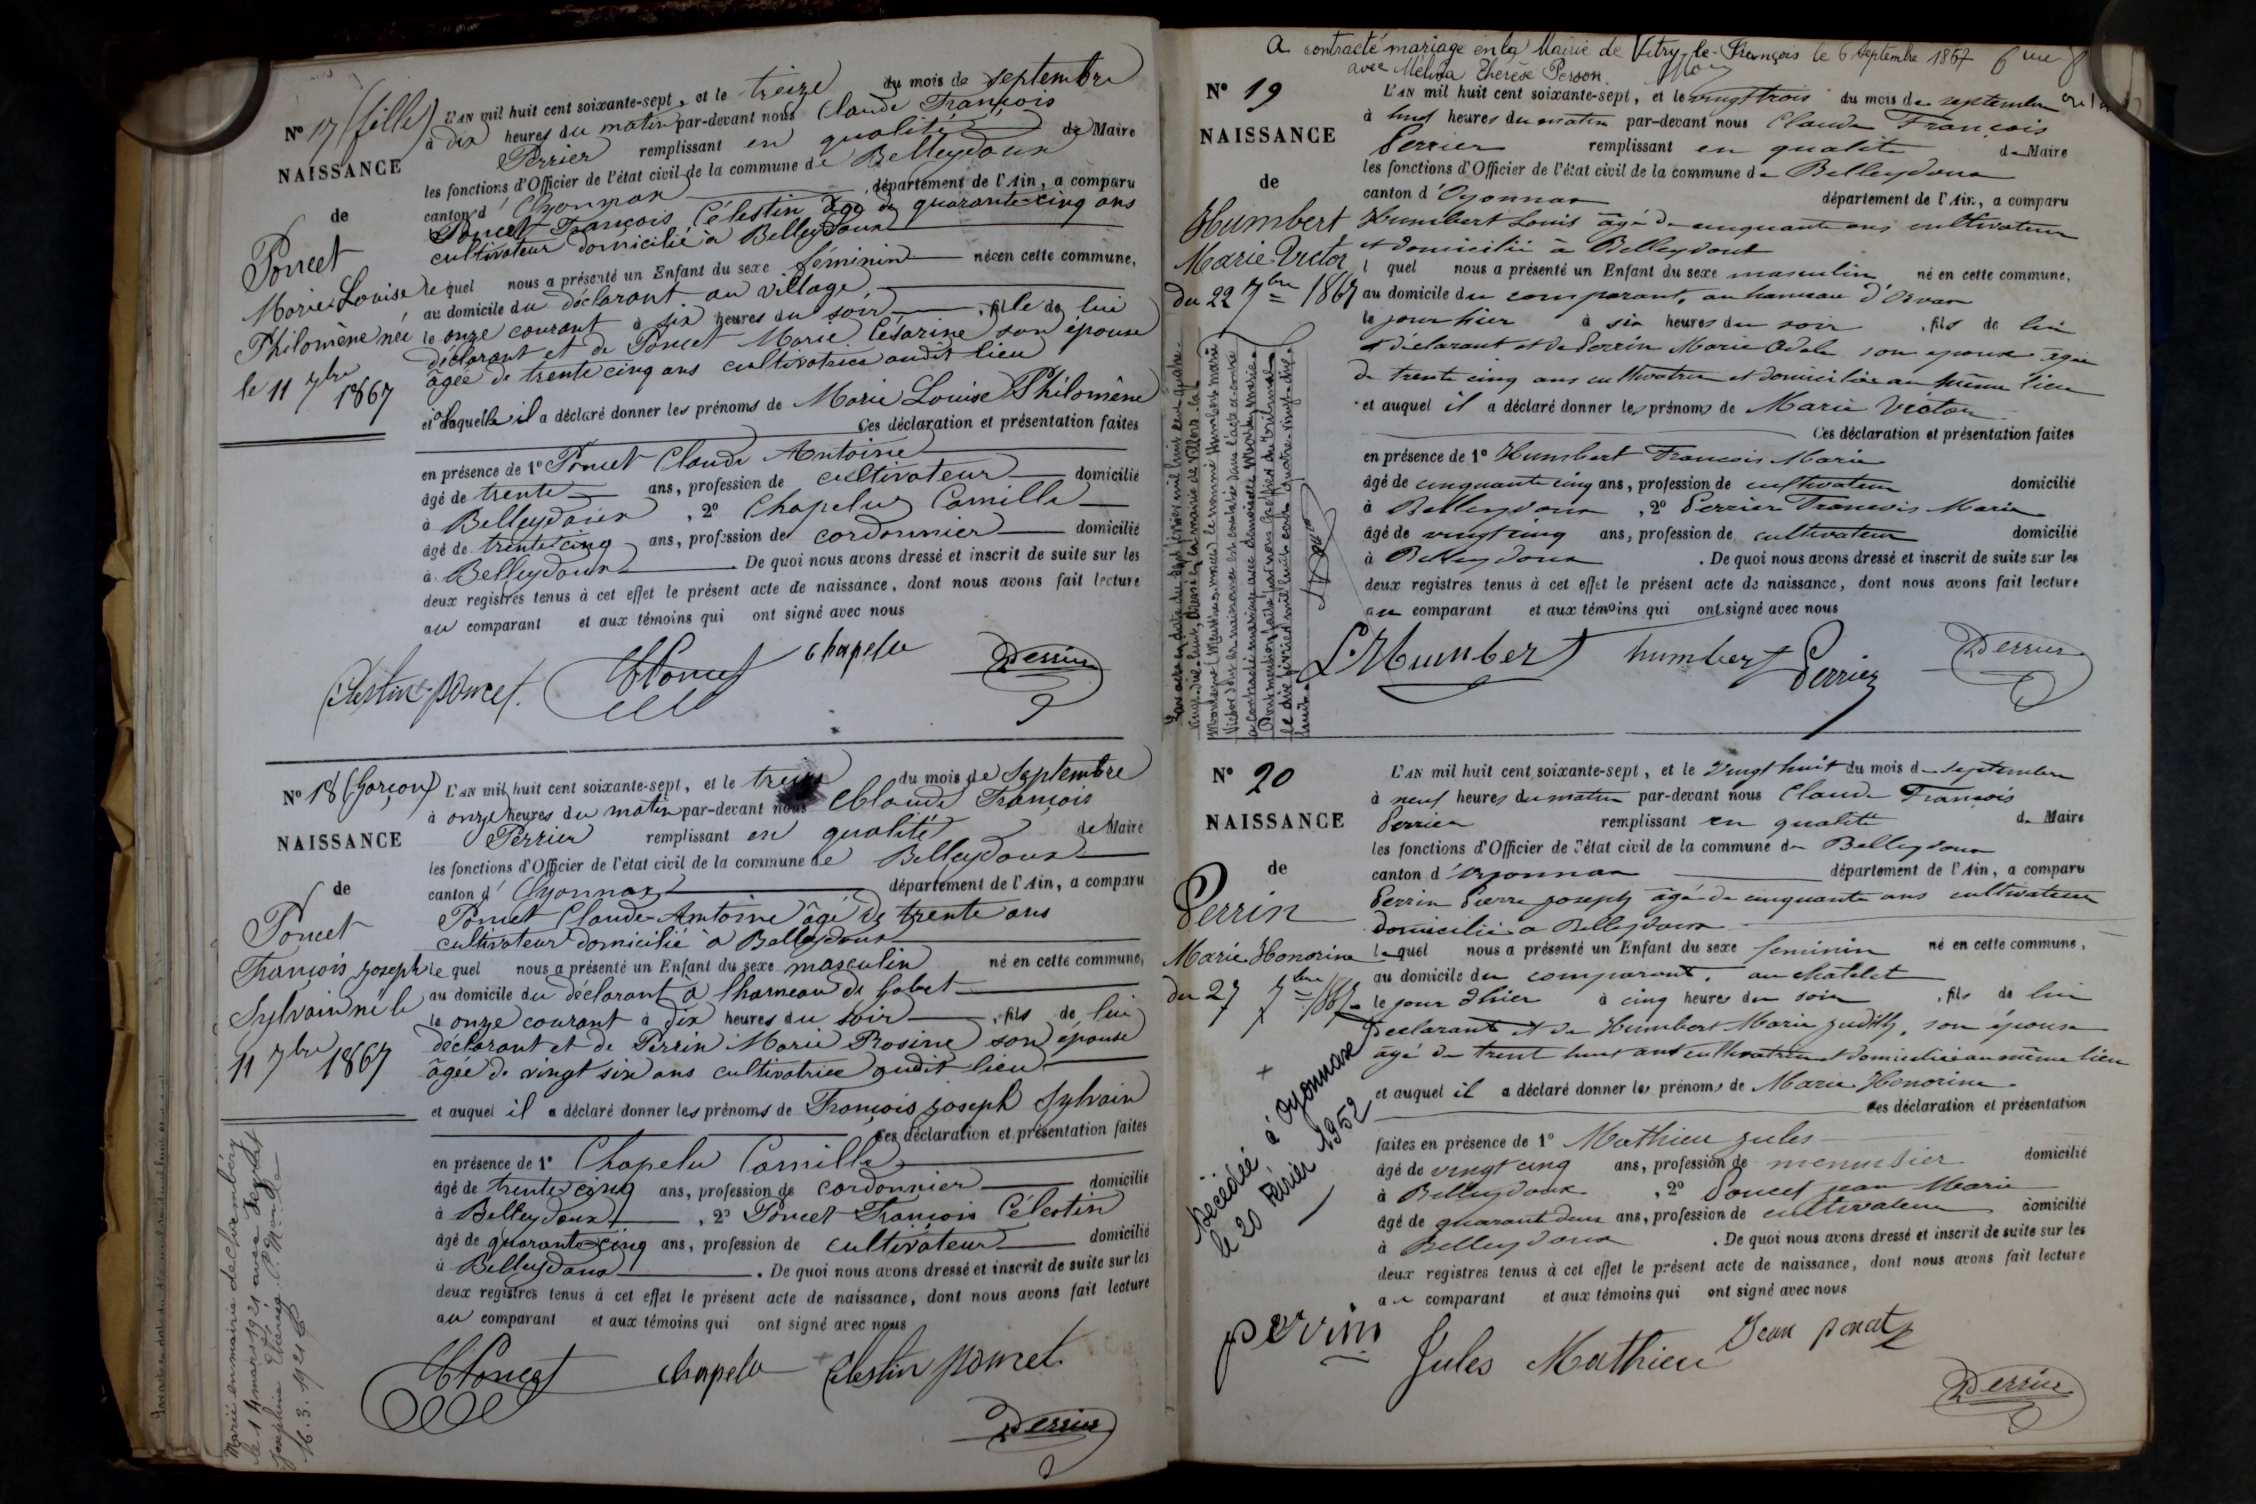 N° 17 (fille)
NAISSANCE
de
Poncet
Marie Louise
Philomène née
le 11 7bre
1867
L'AN mil huit cent soixante-sept, et le treize du mois de septembre
à dix heures du matin par-devant nous Claude François
Perrier remplissant en qualité de Maire
les fonctions d'Officier de l'état civil de la commune de Belleydoux
canton d'Oyonnax département de l'Ain, a comparu
Poncet François Célestin âgé de quarante-cinq ans
cultivateur domicilié à Belleydoux
lequel nous a présenté un Enfant du sexe féminin née en cette commune,
au domicile du déclarant au village
le onze courant à six heures du soir, fille de lui
déclarant et de Poncet Marie Césarine son épouse
âgée de trente cinq ans cultivatrice audit lieu
et à laquelle il a déclaré donner les prénoms de Marie Louise Philomène
Ces déclaration et présentation faites
en présence de 1° Poncet Claude Antoine
âgé de trente ans, profession de cultivateur domicilié
à Belleydoux, 2° Chapelu Camille
âgé de trente cinq ans, profession de cordonnier domicilié
à Belleydoux. De quoi nous avons dressé et inscrit de suite sur les
deux registres tenus à cet effet le présent acte de naissance, dont nous avons fait lecture
au comparant et aux témoins qui ont signé avec nous
Célestin poncet Poncet chapelu Perrier
N° 18 (Garçon)
NAISSANCE
de
Poncet
François Joseph
Sylvain né le
11 7bre 1867
L'AN mil huit cent soixante-sept, et le treize du mois de Septembre
à onze heures du matin par-devant nous Claude François
Perrier remplissant en qualité de Maire
les fonctions d'Officier de l'état civil de la commune de Belleydoux
canton d'Oyonnax département de l'Ain, a comparu
Poncet Claude Antoine âgé de trente ans
cultivateur domicilié à Belleydoux
lequel nous a présenté un Enfant du sexe masculin né en cette commune,
au domicile du déclarant à l'hameau de Gobet
le onze courant à dix heures du soir, fils de lui
déclarant et de Perrin Marie Rosine son épouse
âgée de vingt six ans cultivatrice audit lieu
et auquel il a déclaré donner les prénoms de François Joseph Sylvain
Ces déclaration et présentation faites
en présence de 1° Chapelu Camille
âgé de trente cinq ans, profession de cordonnier domicilié
à Belleydoux, 2° Poncet François Célestin
âgé de quarante-cinq ans, profession de cultivateur domicilié
à Belleydoux. De quoi nous avons dressé et inscrit de suite sur les
deux registres tenus à cet effet le présent acte de naissance, dont nous avons fait lecture
au comparant et aux témoins qui ont signé avec nous
Poncet chapelu Célestin poncet
Perrier
Marié en mairie de Chambéry
le 14 mars 1921 avec
Joséphine
16.3.1921
a contracté mariage en la Mairie de Vitry-le-François le 6 Septembre 1867
avec Mélina Thérèse Person
N° 19
NAISSANCE
de
Humbert
Marie Victor
du 22 7bre 1867
L'AN mil huit cent soixante-sept, et le vingt trois du mois de septembre
à huit heures du matin par-devant nous Claude François
Perrier remplissant en qualité de Maire
les fonctions d'Officier de l'état civil de la commune de Belleydoux
canton d'Oyonnax département de l'Ain, a comparu
Humbert Louis âgé de cinquante ans cultivateur
et domicilié à Belleydoux
lequel nous a présenté un Enfant du sexe masculin né en cette commune,
au domicile du comparant, au hameau d'Orvaz
le jour hier à six heures du soir, fils de lui
déclarant et de Perrin Marie Adèle son épouse âgée
de trente cinq ans cultivatrice et domiciliée au même lieu
et auquel il a déclaré donner les prénoms de Marie Victor
Ces déclaration et présentation faites
en présence de 1° Humbert François Marie
âgé de cinquante cinq ans, profession de cultivateur domicilié
à Belleydoux, 2° Perrier François Marie
âgé de vingt cinq ans, profession de cultivateur domicilié
à Belleydoux. De quoi nous avons dressé et inscrit de suite sur les
deux registres tenus à cet effet le présent acte de naissance, dont nous avons fait lecture
au comparant et aux témoins qui ont signé avec nous
L. Humbert humbert Perrier Perrier
N° 20
NAISSANCE
de
Perrin
Marie Honorine
du 27 7bre 1867
L'AN mil huit cent soixante-sept, et le vingt huit du mois de septembre
à neuf heures du matin par-devant nous Claude François
Perrier remplissant en qualité de Maire
les fonctions d'Officier de l'état civil de la commune de Belleydoux
canton d'Oyonnax département de l'Ain, a comparu
Perrin Pierre Joseph âgé de cinquante ans cultivateur
domicilié à Belleydoux
lequel nous a présenté un Enfant du sexe feminin né en cette commune,
au domicile du comparant, au chatelet
le jour d'hier à cinq heures du soir, fils de lui
Déclarant et de Humbert Marie Judith, son épouse
âgé de trent huit ans cultivatrice et domiciliée au même lieu
et auquel il a déclaré donner les prénoms de Marie Honorine
Ces déclaration et présentation
faites en présence de 1° Mathieu Jules
âgé de vingt cinq ans, profession de menuisier domicilié
à Belleydoux, 2° Poncet Jean Marie
âgé de quarant deux ans, profession de cultivateur domicilié
à Belleydoux. De quoi nous avons dressé et inscrit de suite sur les
deux registres tenus à cet effet le présent acte de naissance, dont nous avons fait lecture
au comparant et aux témoins qui ont signé avec nous
Décédée à Oyonnax
le 20 Février 1952
perrin Jules Mathieu Jean ponct
Perrier